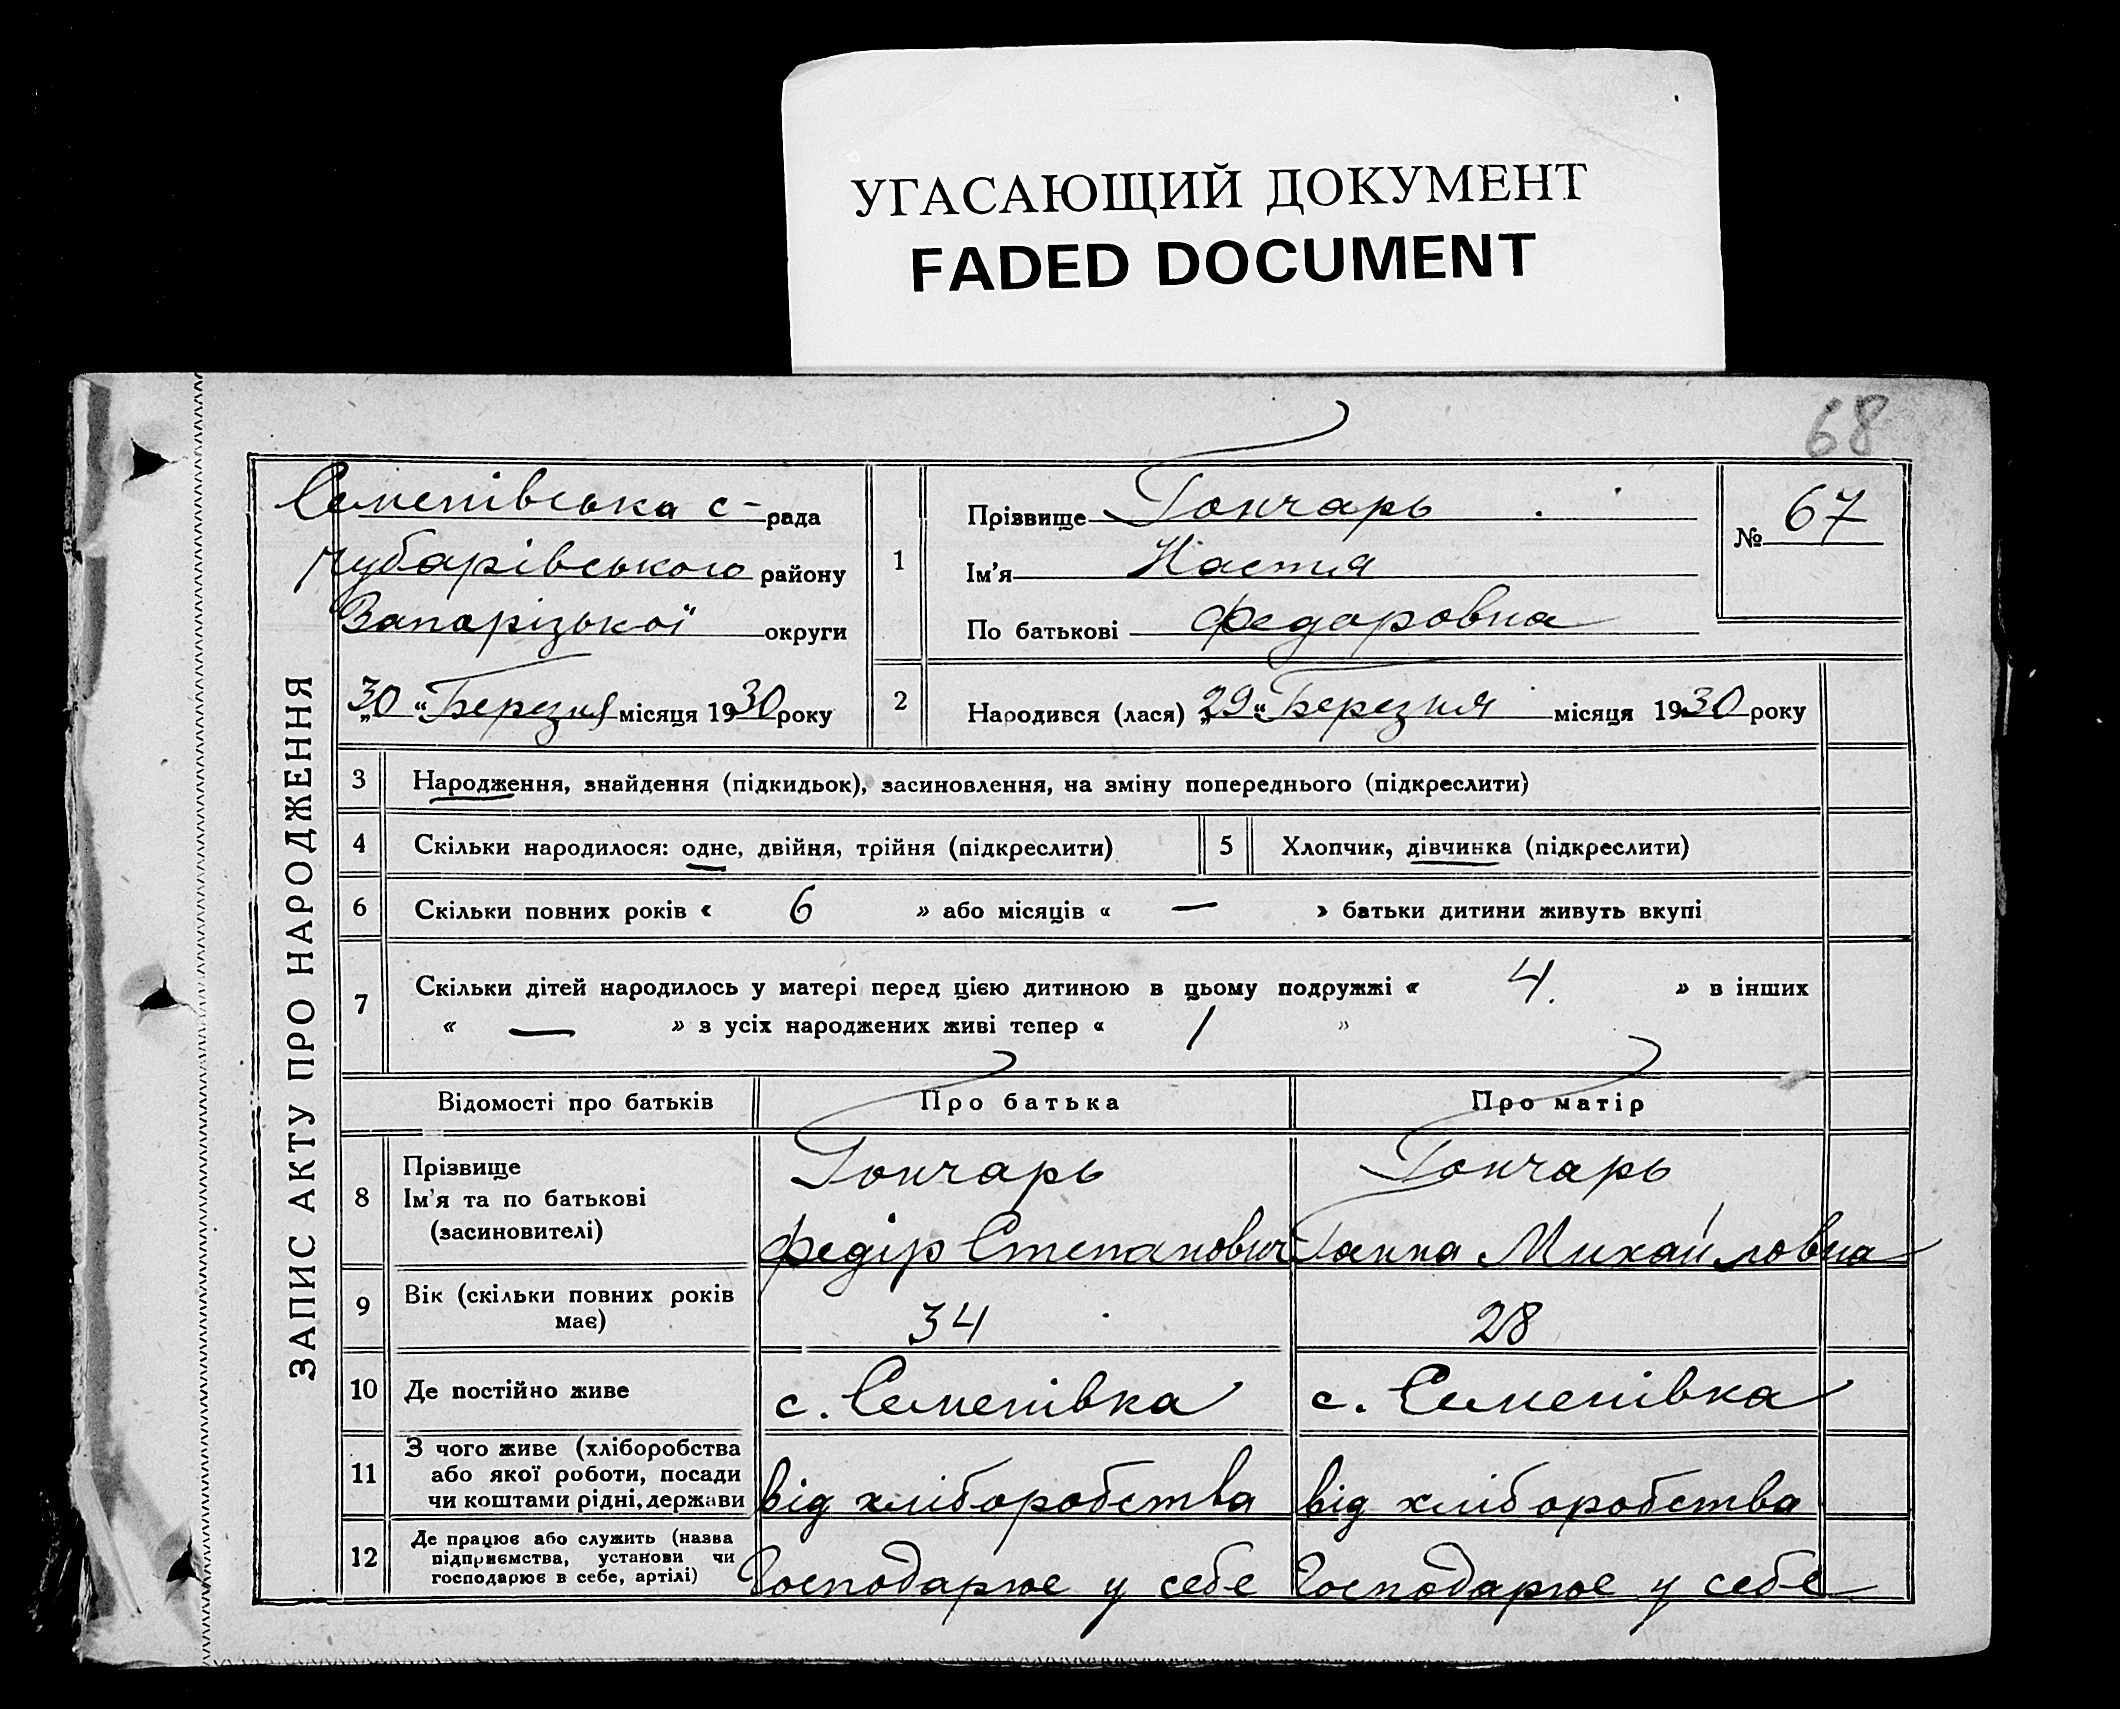 УГАСАЮЩИЙ ДОКУМЕНТ
FADED DOCUMENT
68
ЗАПИС АКТУ ПРО НАРОДЖЕННЯ
Семенівська с-рада
Чубарівського району
Запорізької округи
„30“ Березня місяця 1930 року
1
Прізвище Гончарь
Ім’я Настя
По батькові Федоровна
№ 67
2
Народився (лася) „29“ Березня місяця 1930 року
3 Народження, знайдення (підкидьок), засиновлення, на зміну попереднього (підкреслити)
4 Скільки народилося: одне, двійня, трійня (підкреслити) 5 Хлопчик, дівчинка (підкреслити)
6 Скільки повних років « 6 » або місяців « — » батьки дитини живуть вкупі
7 Скільки дітей народилось у матері перед цією дитиною в цьому подружжі « 4. » в інших
« — » з усіх народжених живі тепер « 1 »
Відомості про батьків Про батька Про матір
8 Прізвище
Ім’я та по батькові
(засиновителі)
Гончарь
Федір Степанович
Гончарь
Ганна Михайловна
9 Вік (скільки повних років
має)
34 28
10 Де постійно живе с. Семенівка с. Семенівка
11 З чого живе (хліборобства
або якої роботи, посади
чи коштами рідні, держави
від хліборобства від хліборобства
12 Де працює або служить (назва
підприємства, установи чи
господарює в себе, артілі)
Господарює у себе Господарює у себе